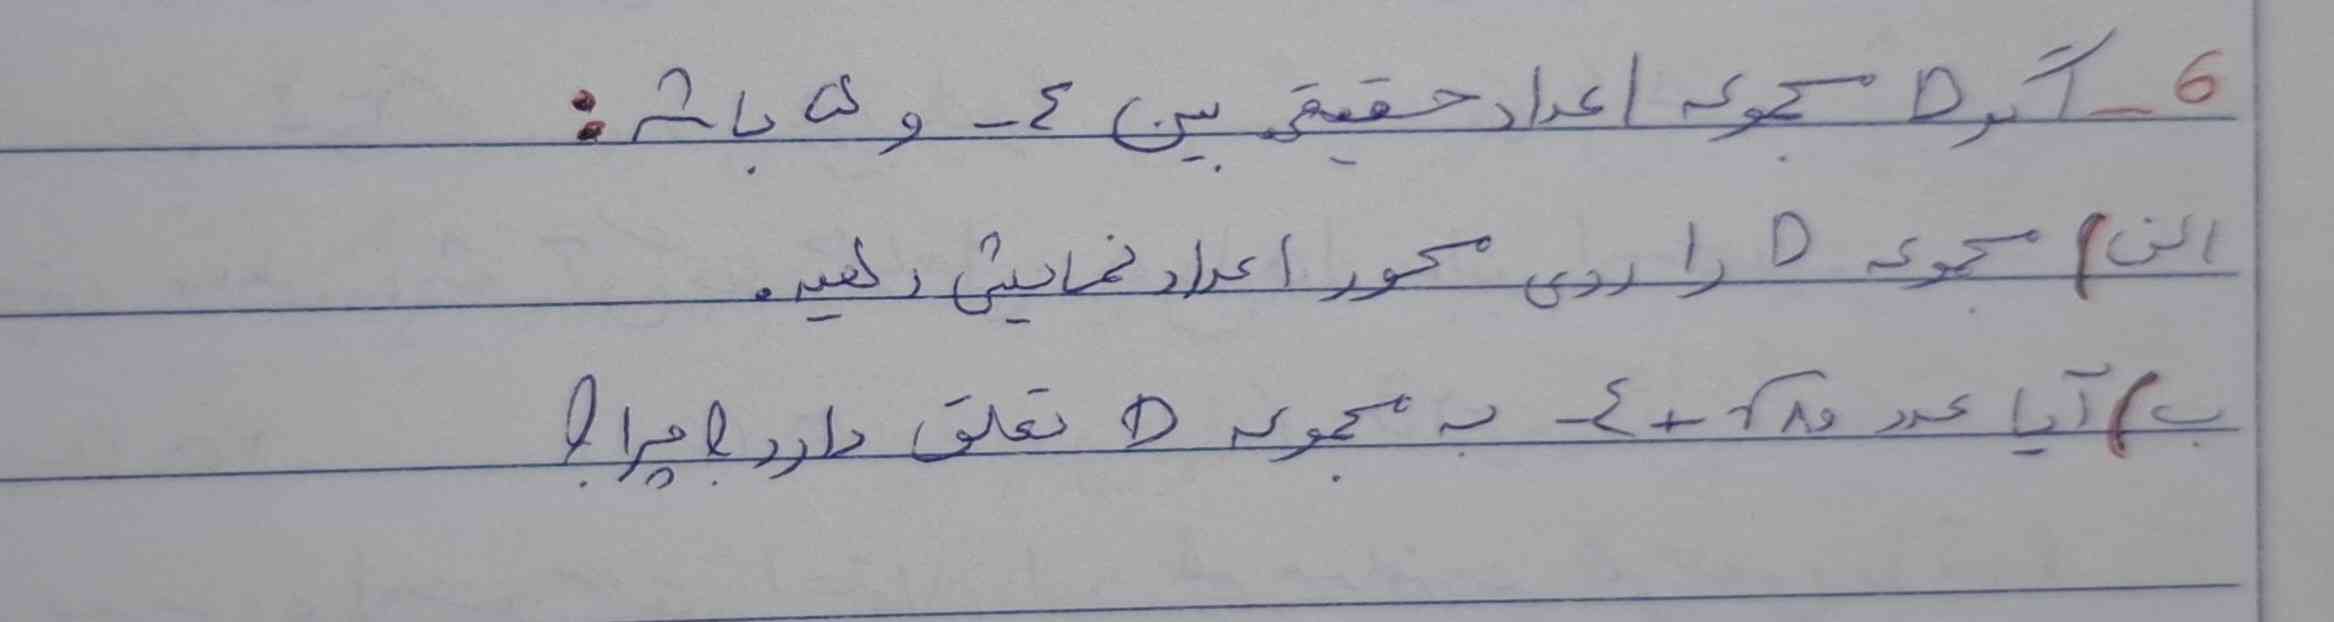 6_ اگر D مجموعه اعداد حقیقی بین ٤- و ۵ باشد:
الف) مجموعه D را روی محور اعداد نمایش دهید.
ب) آیا عدد √۸۹ + ٤- به مجموعه D تعلق دارد؟ چرا؟